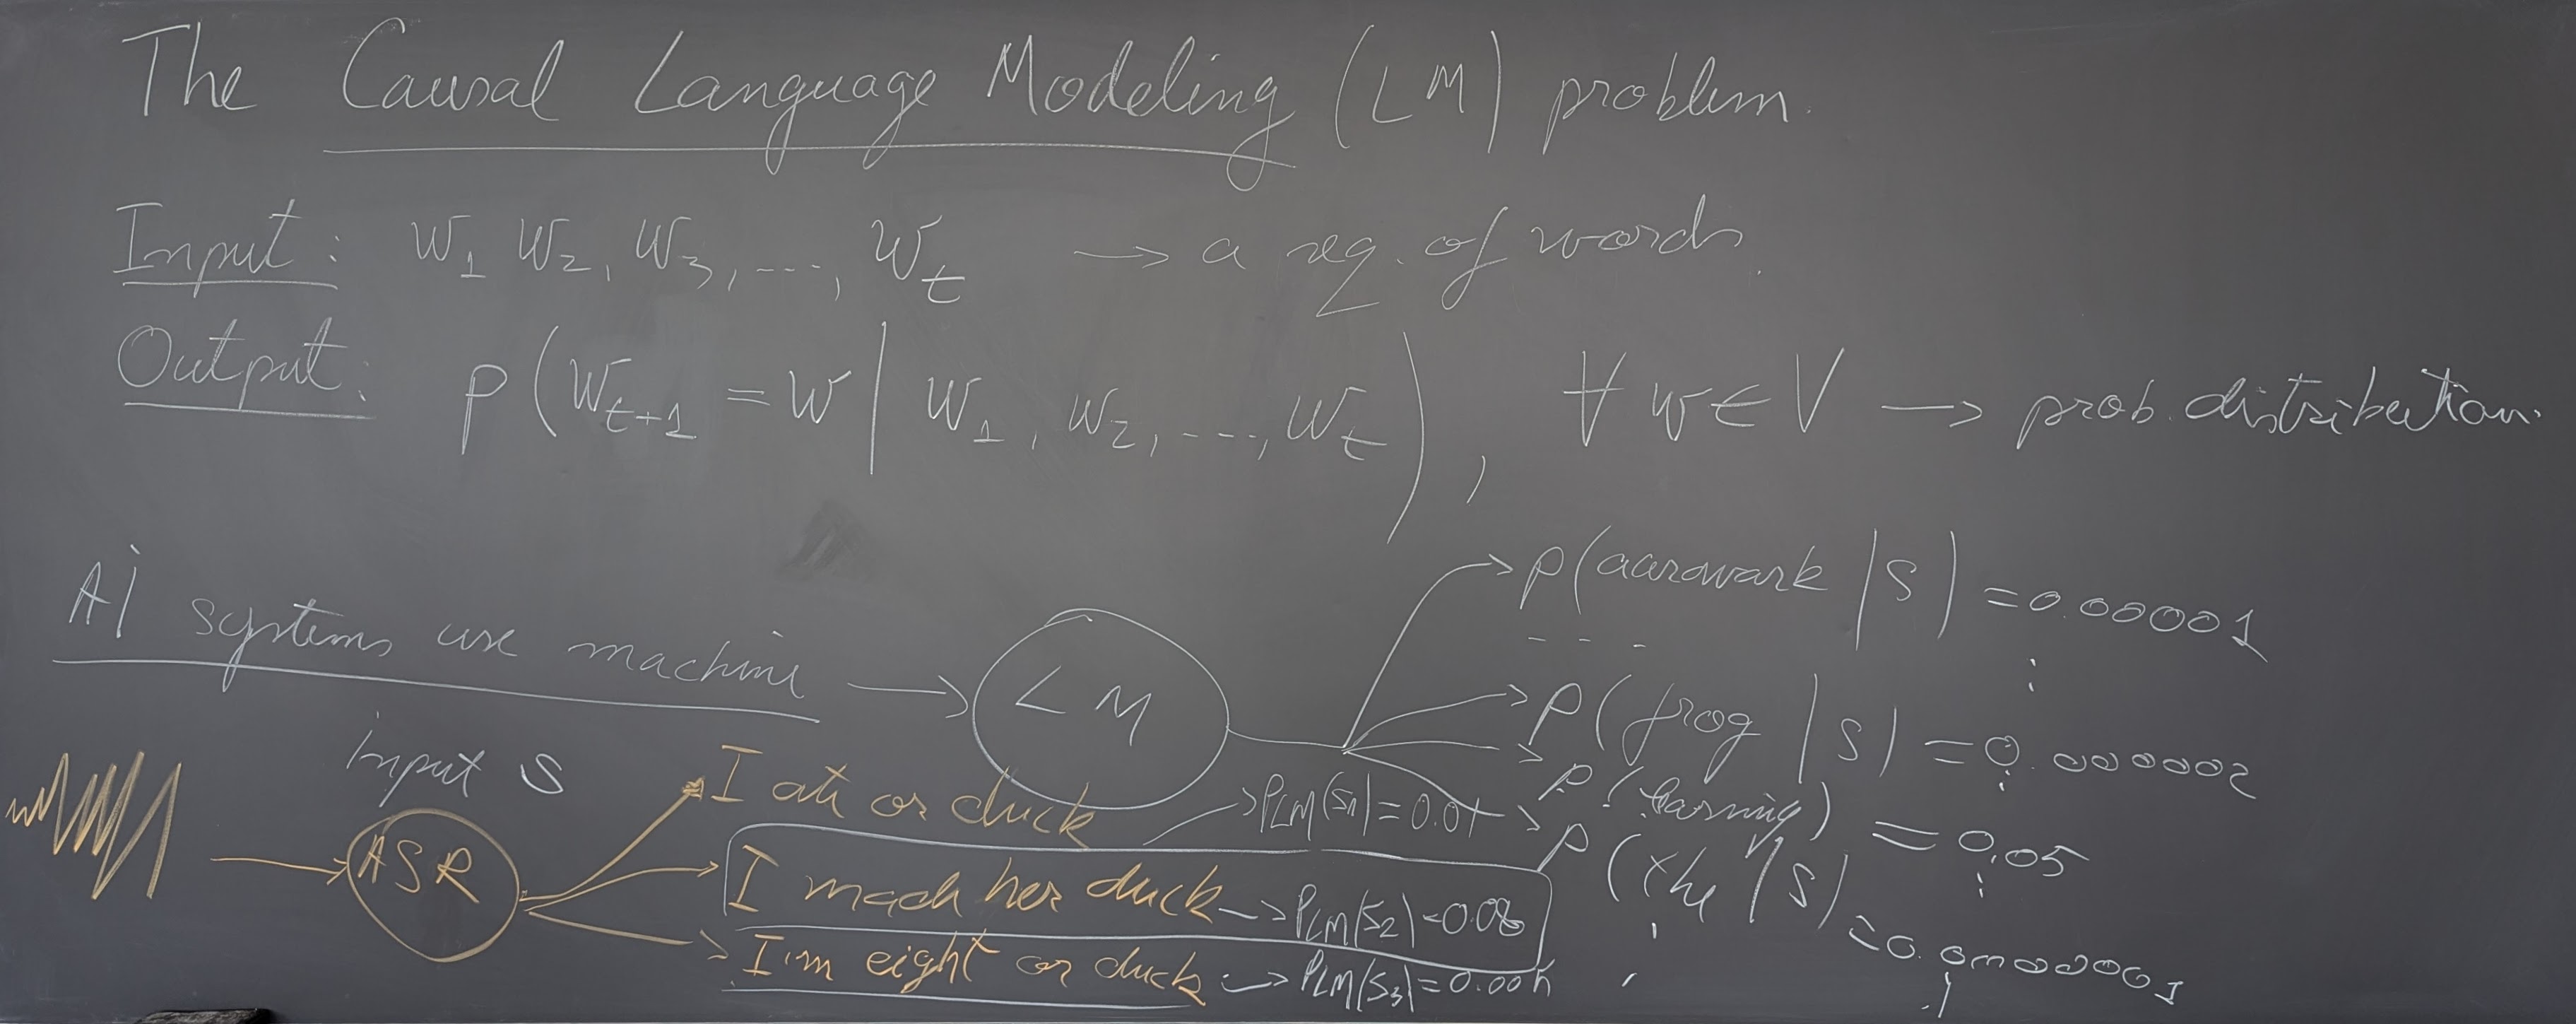 The Causal Language Modeling (LM) problem.
Input: W1 W2, W3, ---, Wt → a seq. of words.
Output: P(Wt+1 = W | W1, W2, ---, Wt), ∀ w ∈ V → prob. distribution.
AI systems use machine → LM
input S
→ P(aarowark | S) = 0.00001
- - -
→ P(frog | S) = 0.000002
→ P(learning) = 0.05
→ P(the | S)
ASR
I ate or duck → PLM(S1) = 0.01
I mach her duck → PLM(S2) = 0.08
I'm eight or duck → PLM(S3) = 0.005